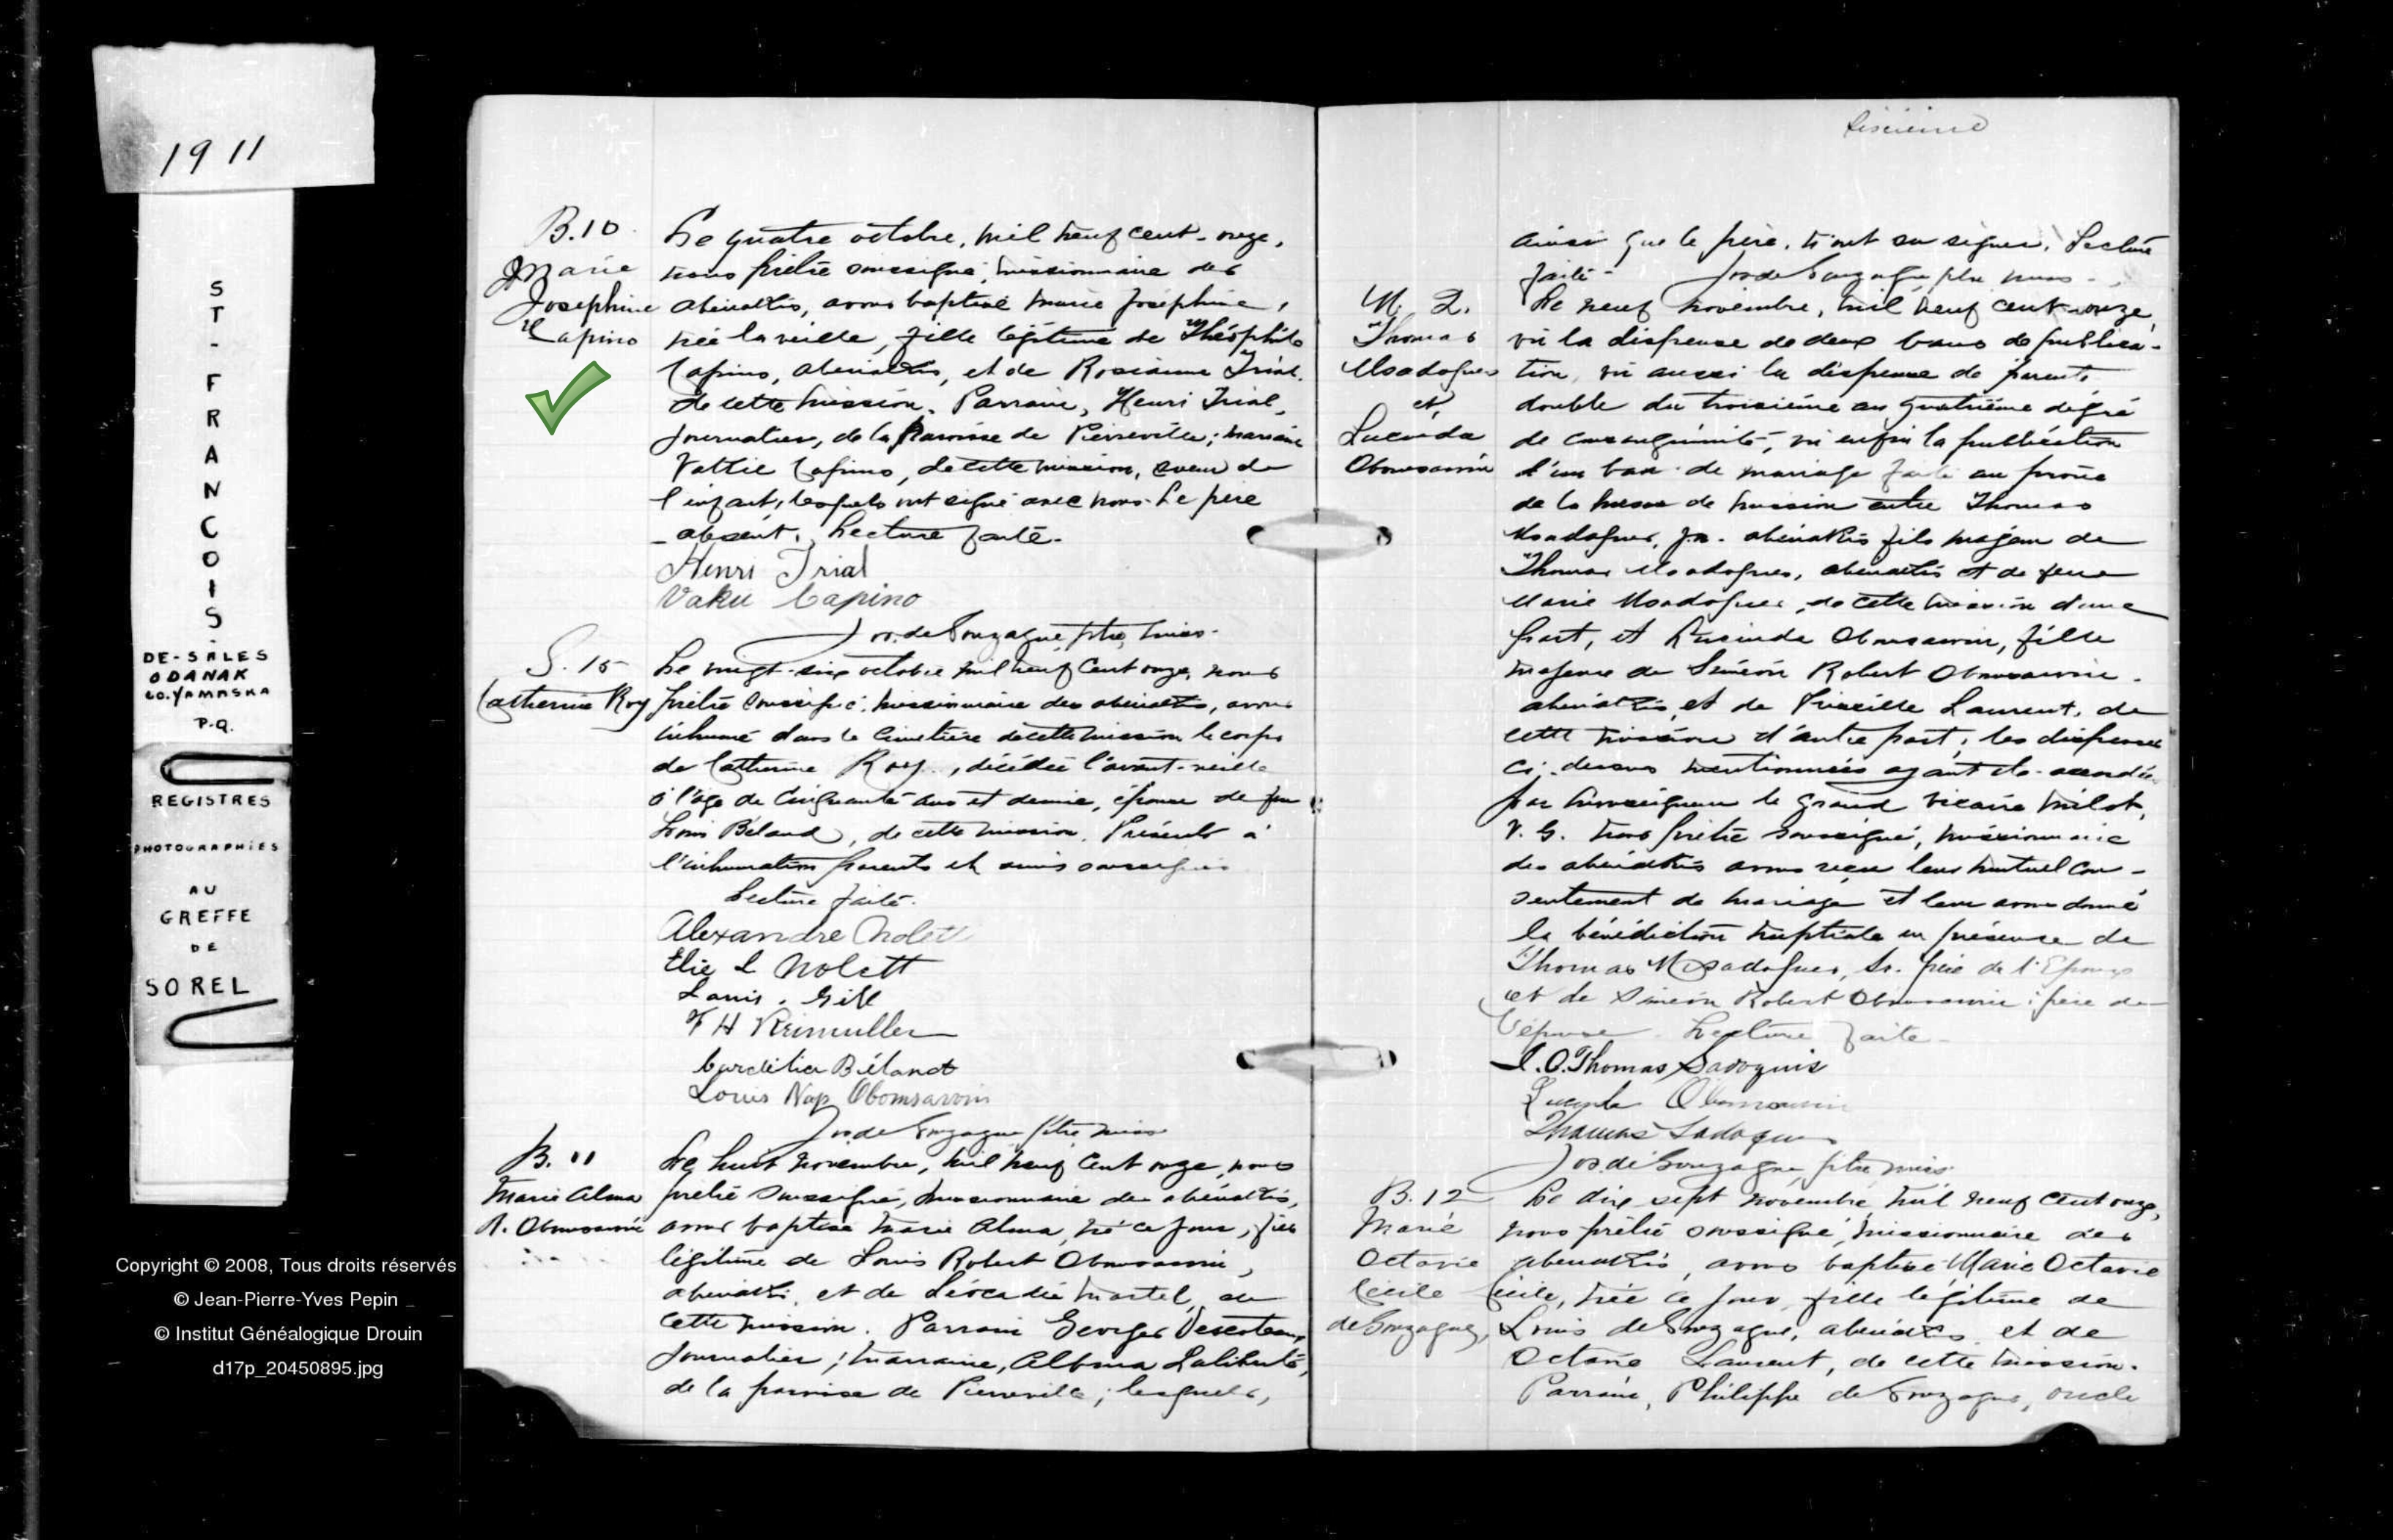 1911
ST-FRANCOIS-
DE-SALES
ODANAK
CO. YAMASKA
P.Q.
REGISTRES
PHOTOGRAPHIÉS
AU
GREFFE
DE
SOREL
Copyright © 2008, Tous droits réservés
© Jean-Pierre-Yves Pepin
© Institut Généalogique Drouin
d17p_20450895.jpg
B.10
Marie
Josephine
Capino
Le quatre octobre, mil neuf cent-onze,
nous prêtre soussigné, missionnaire des
abénakis, avons baptisé Marie Joséphine,
née la veille, fille légitime de Théophile
Capino, abénakis, et de Rosianne Trial.
de cette mission. Parrain, Henri Trial,
journalier, de la paroisse de Pierreville; marraine
Capino, de cette mission, soeur de
l'enfant, lesquels ont signé avec nous. Le père
absent. Lecture faite.
Henri Trial
Capino
Jos. de Gonzague, ptre, miss.
S. 15
Catherine Roy
Le vingt-six octobre mil neuf cent onze, nous
prêtre soussigné, missionnaire des abénakis, avons
inhumé dans le cimetière de cette mission le corps
de Catherine Roy, décédée l'avant-veille
à l'age de cinquante ans et demie, épouse de feu
Louis Béland, de cette mission. Présents à
l'inhumation parents et amis soussignés
Lecture faite.
Alexandre Nolett
Elie L Nolett
Louis. Gill
F H Reimuller
Béland
Louis Nap Obomsawin
Jos de Gonzague ptre miss
B. 11
Marie Alma
R. Obomsawin
Le huit novembre, mil neuf cent onze, nous
prêtre soussigné, missionnaire des abénakis,
avons baptisé Marie Alma, né ce jour, fille
légitime de Louis Robert Obomsawin,
abénakis, et de Léocadie Martel, de
cette mission. Parrain Georges Descoteaux,
journalier; marraine, Albina Laliberté,
de la paroisse de Pierreville; lesquels,
ainsi que le père, n'ont su signer. Lecture
faite- Jos de Gonzague, ptre miss-
M. 2.
Thomas
Msadoques
et
Lucinda
Obomsawin
Le neuf novembre, mil neuf cent onze,
vu la dispense de deux bans de publica-
tion, vu aussi la dispense de parenté
double du troisième au quatrième dégré
de consanguinité, vu enfin la publication
d'un ban de mariage faite au prône
de la messe de mission entre Thomas
Msadoques, Jr. abénakis fils majeur de
Thomas Msadoques, abénakis et de feue
Marie Msadoques, de cette mission d'une
part, et Lucinda Obomsawin, fille
majeure de Siméon Robert Obomsawin.
abénakis, et de Priscille Laurent, de
cette mission d'autre part; les dispenses
ci-dessus mentionnées ayant été accordées
par Monseigneur le grand vicaire Milot,
V. G. nous prêtre soussigné, missionnaire
des abénakis avons reçu leur mutuel con-
sentement de mariage et leur avons donné
la bénédiction nuptiale en présence de
Thomas Msadoques, Sr. père de l'Epoux
et de Siméon Robert Obomsawin: père de
l'épouse. Lecture faite-
Thomas Sadoquis
Lucinda Obomsawin
Thomas Sadoques
Jos. de Gonzague, ptre miss.
B. 12
Marie
Octavie
Cécile
de Gonzague,
Le dix sept novembre, mil neuf cent onze,
nous prêtre soussigné, missionnaire des
abénakis, avons baptisé Marie Octavie
Cécile, née ce jour, fille légitime de
Louis de Gonzague, abénakis et de
Octavie Laurent, de cette mission.
Parrain, Philippe de Gonzague, oncle